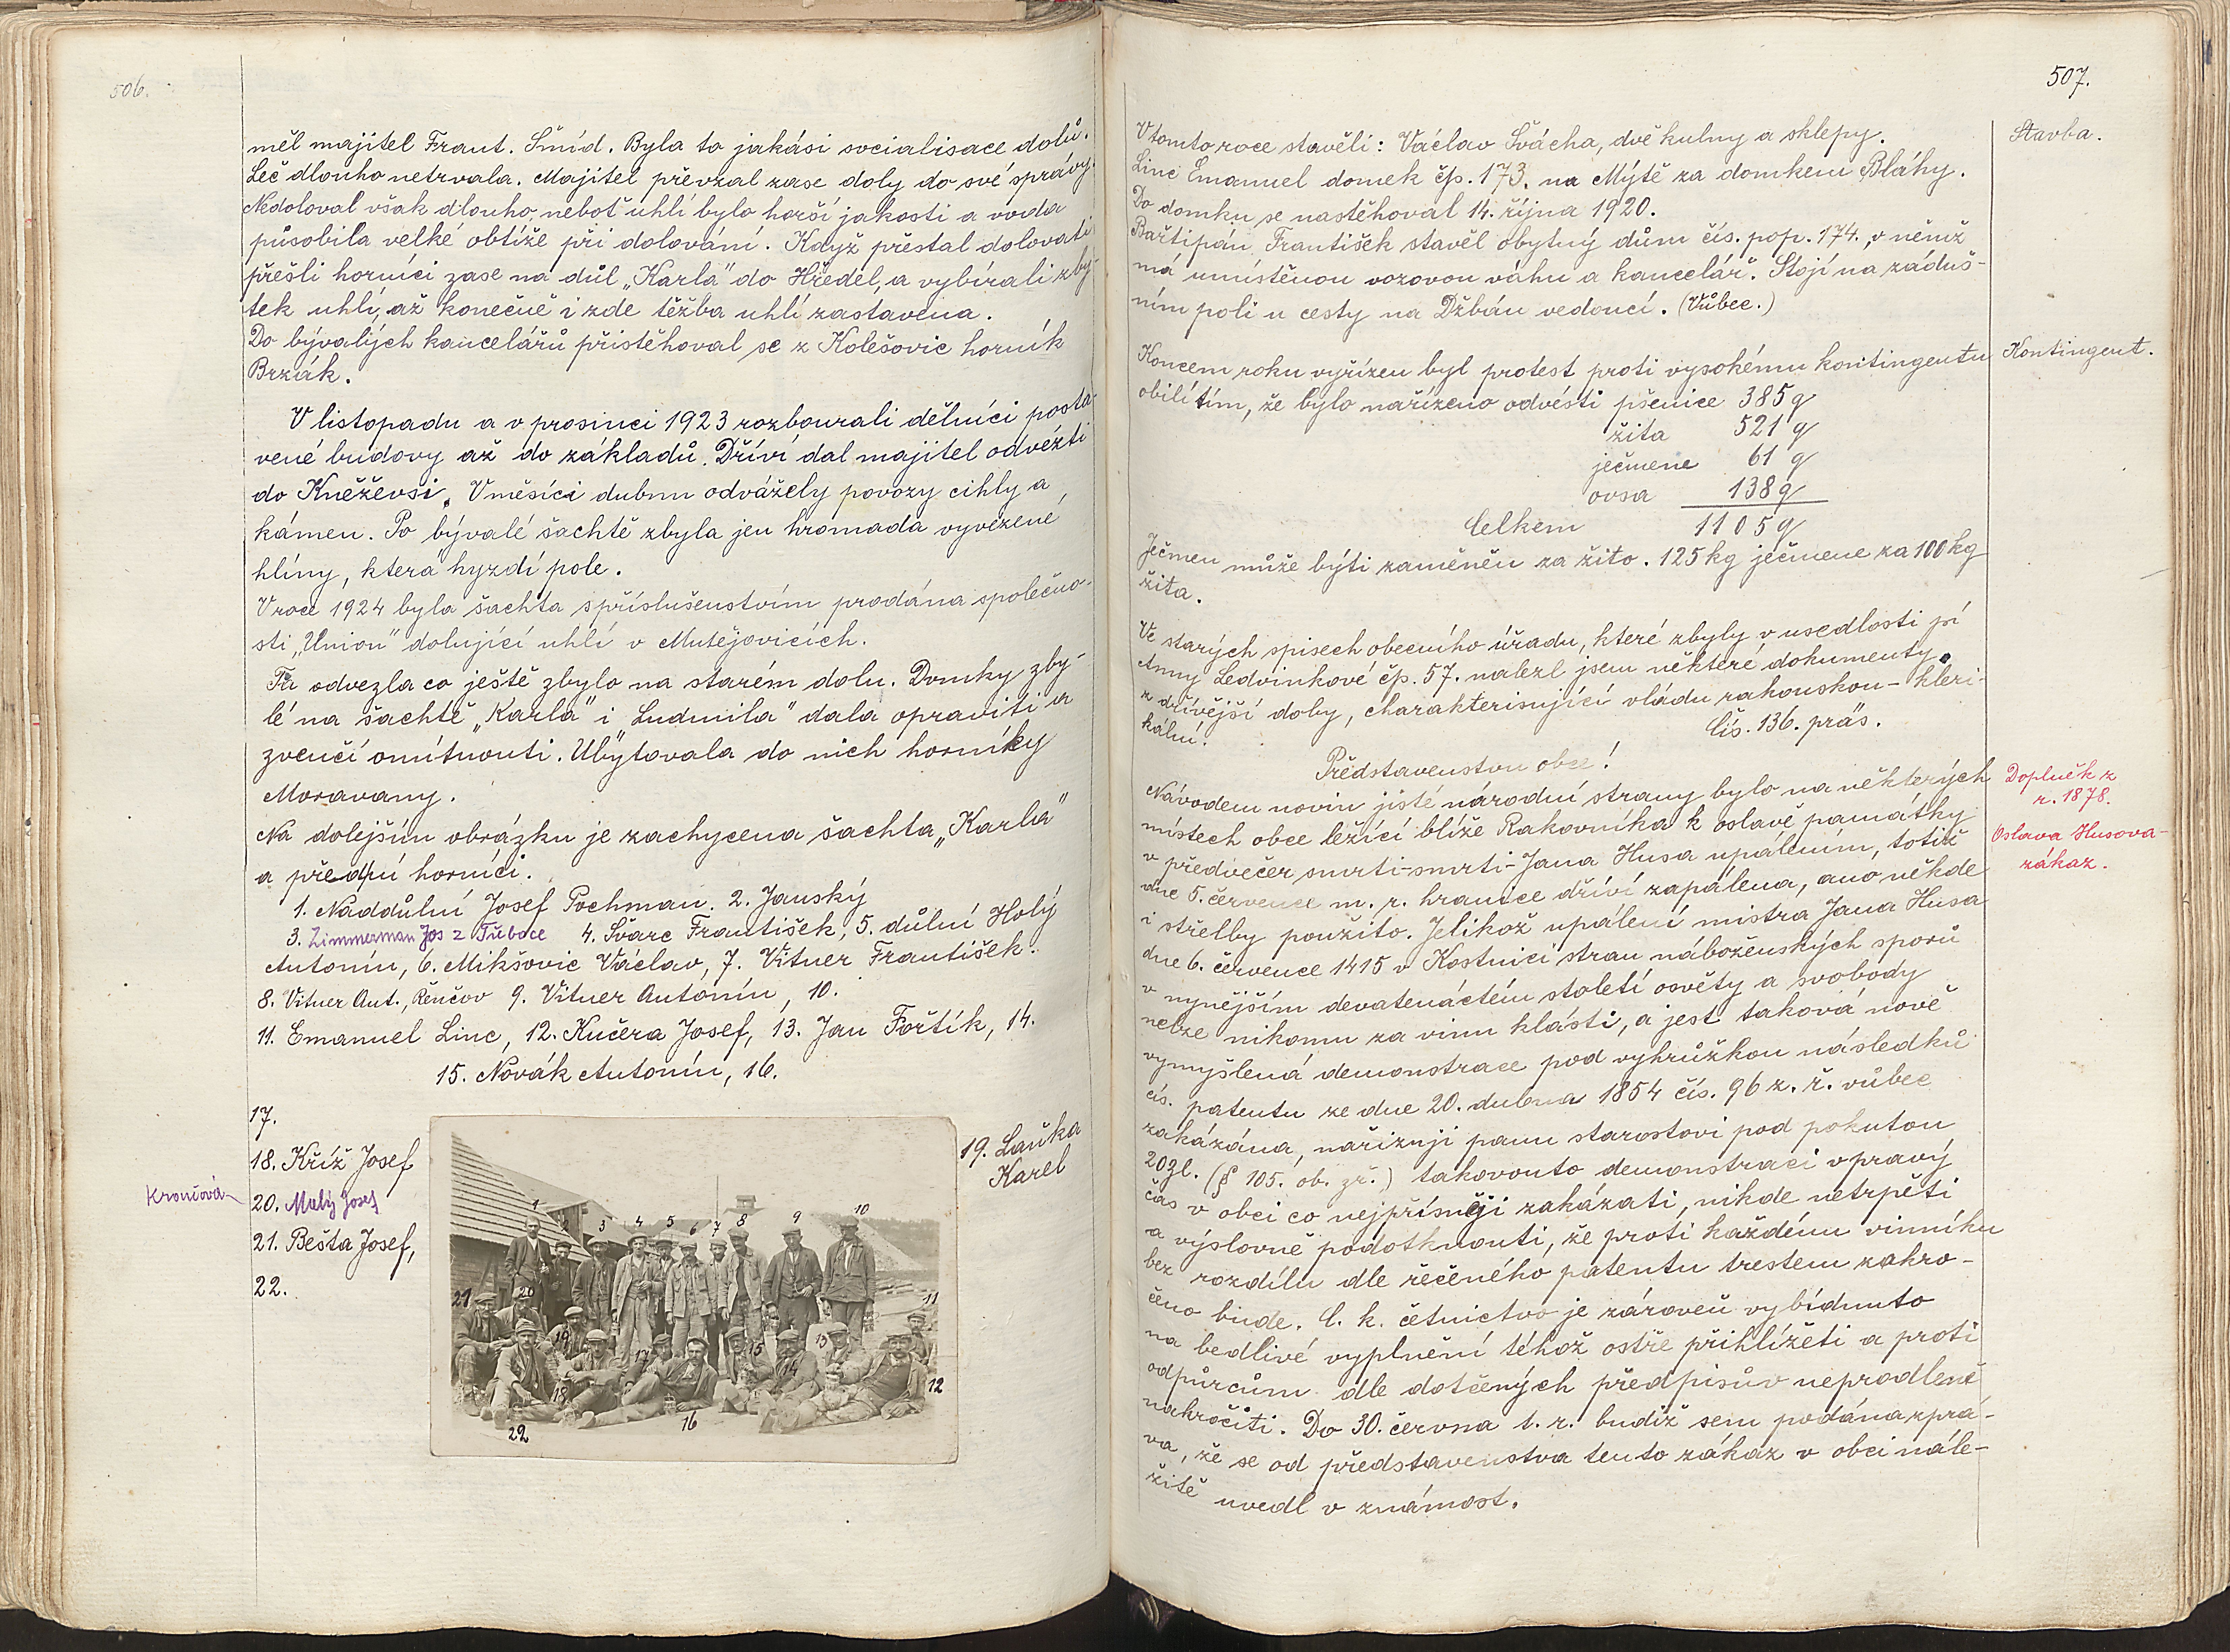 506.
měl majitel Frant. Šmíd. Byla to jakási socialisace dolů.
Leč dlouho netrvala. Majitel převzal zase doly do své správy.
Nedoloval však dlouho, neboť uhlí bylo horší jakosti a voda
působila velké obtíže při dolování. Když přestal dolovati
přešli horníci zase na důl „Karla" do Hředel, a vybírali zby-
tek uhlí, až konečně i zde těžba uhlí zastavena.
Do bývalých kancelářů přistěhoval se z Kolešovic horník
Brzák.
V listopadu a v prosinci 1923 rozbourali dělníci posta-
vené budovy až do základů. Dříví dal majitel odvézti
do Kněževsi. V měsíci dubnu odvážely povozy cihly a
kámen. Po bývalé šachtě zbyla jen hromada vyvezené
hlíny, která hyzdí pole.
V roce 1924 byla šachta s příslušenstvím prodána společno-
sti „Union" dolující uhlí v Mutějovicích.
Ta odvezla co ještě zbylo na starém dolu. Domky zby-
lé na šachtě „Karla" i „Ludmila" dala opraviti a
zvenčí omítnouti. Ubytovala do nich horníky
Moravany.
Na dolejším obrázku je zachycena šachta „Karla"
a před ní horníci.
1. Naddůlní Josef Pochman. 2. Janský
3. Zimmerman Jos z Třeboce 4. Švarc František, 5. důlní Holý
Antonín, 6. Mikšovic Václav, 7. Vitner František.
8. Vitner Ant., Řenčov 9. Vitner Antonín, 10.
11. Emanuel Linc, 12. Kučera Josef, 13. Jan Fořtík, 14.
15. Novák Antonín, 16.
17.
18. Kříž Josef
Krončová
20. Malý Josef
21. Bešta Josef,
22.
19. Laňka
Karel
1 2 3 4 5 6 7 8 9 10
21 20 11
19 17 15 14 13
18 12
22 16
507.
V tomto roce stavěli: Václav Švácha, dvě kulny a sklepy.
Linc Emanuel domek čp. 173. na Mýtě za domkem Bláhy.
Do domku se nastěhoval 14. října 1920.
Bařtipán František stavěl obytný dům čís. pop. 174., v němž
má umístěnou vozovou váhu a kancelář. Stojí na záduš-
ním poli u cesty na Džbán vedoucí. (Vůbec.)
Stavba.
Koncem roku vyřízen byl protest proti vysokému kontingentu
obilí tím, že bylo nařízeno odvésti pšenice 385 q
žita 521 q
ječmene 61 q
ovsa 138 q
Celkem 1105 q
Kontingent.
Ječmen může býti zaměněn za žito. 125 kg ječmene za 100 kg
žita.
Ve starých spisech obecního úřadu, které zbyly v usedlosti pí
Anny Ledvinkové čp. 57. nalezl jsem některé dokumenty
z dřívější doby, charakterisující vládu rakouskou - kleri-
kální.
Čís. 136. präs.
Představenstvu obce!
Návodem novin jisté národní strany bylo na některých
místech obce ležící blíže Rakovníka k oslavě památky
v předvečer smrti-smrti-Jana Husa upálením, totiž
dne 5. července m. r. hranice dříví zapálena, ano někde
i střelby použito. Jelikož upálení mistra Jana Husa
dne 6. července 1415 v Kostnici stran náboženských sporů
v nynějším devatenáctém století osvěty a svobody
nelze nikomu za vinu klásti, a jest taková nově
vymyšlená demonstrace pod vyhrůžkou následků
cís. patentu ze dne 20. dubna 1854 čís. 96 z. ř. vůbec
zakázána, nařizuji panu starostovi pod pokutou
20 zl. (§ 105. ob. zř.) takovouto demonstraci v pravý
čas v obci co nejpřísněji zakázati, nikde netrpěti
a výslovně podotknouti, že proti každému vinníku
bez rozdílu dle řečeného patentu trestem zakro-
čeno bude. C. k. četnictvo je zároveň vybídnuto
na bedlivé vyplnění téhož ostře přihlížeti a proti
odpůrcům dle dotčených předpisův neprodleně
nakročiti. Do 30. června t. r. budiž sem podána zprá-
va, že se od představenstva tento zákaz v obci nále-
žitě uvedl v známost.
Doplněk z
r. 1878.
Oslava Husova-
zákaz.